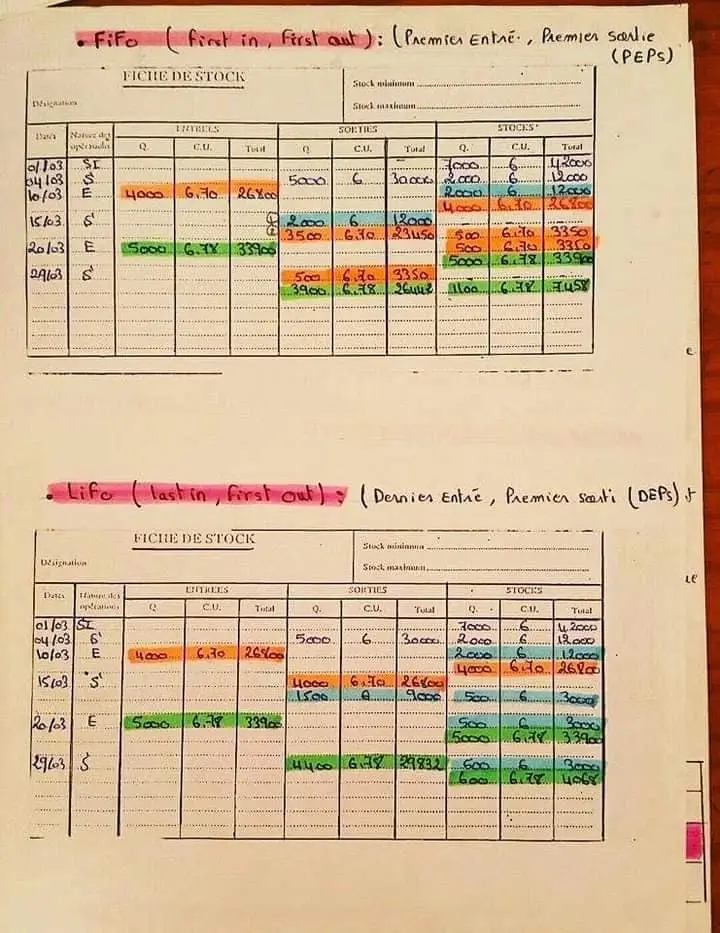 • FiFo ( first in , First out ) : ( Premier Entré , Premier sortie
(PEPs)
FICHE DE STOCK
Stock minimum
Désignation
Stock maximum
Dates Nature des opérations ENTREES SORTIES STOCKS
Q. C.U. Total Q. C.U. Total Q. C.U. Total
01/03 SI 7000 6 42000
04/03 S 5000 6 30000 2000 6 12000
10/03 E 4000 6,70 26800 2000 6 12000
4000 6,70 26800
15/03 S ① 2000 6 12000
② 3500 6,70 23450 500 6,70 3350
20/03 E 5000 6.78 33900 500 6,70 3350
5000 6,78 33900
29/03 S 500 6,70 3350
3900 6.78 26442 1100 6,78 7458
• LiFo ( last in , first out ) : ( Dernier Entré , Premier sorti (DEPs)
FICHE DE STOCK
Stock minimum
Désignation
Stock maximum
Dates Nature des opérations ENTREES SORTIES STOCKS
Q. C.U. Total Q. C.U. Total Q. C.U. Total
01/03 SI 7000 6 42000
04/03 S 5000 6 30000 2000 6 12000
10/03 E 4000 6,70 26800 2000 6 12000
4000 6,70 26800
15/03 S 4000 6,70 26800
1500 6 9000 500 6 3000
20/03 E 5000 6,78 33900 500 6 3000
5000 6,78 33900
29/03 S 4400 6,78 29832 500 6 3000
600 6,78 4068